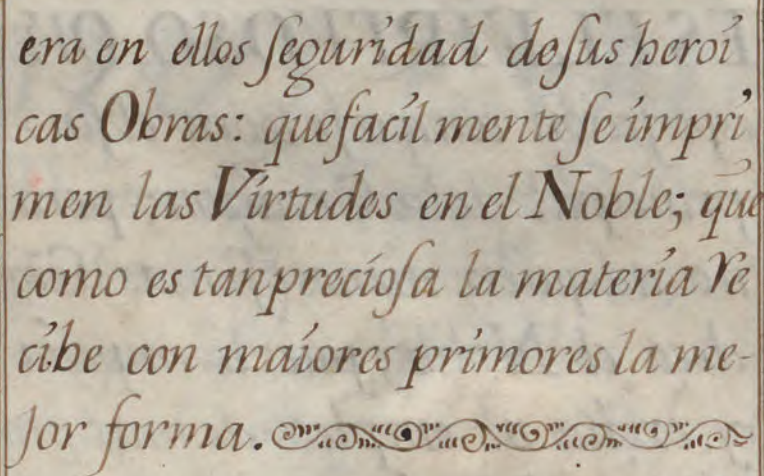 era en ellos ſeguridad deſus heroi
cas Obras: quefacil mente ſe impri
men las Virtudes en el Noble; que
como es tanprecioſa la materia re
cibe con maiores primores la me-
jor forma.